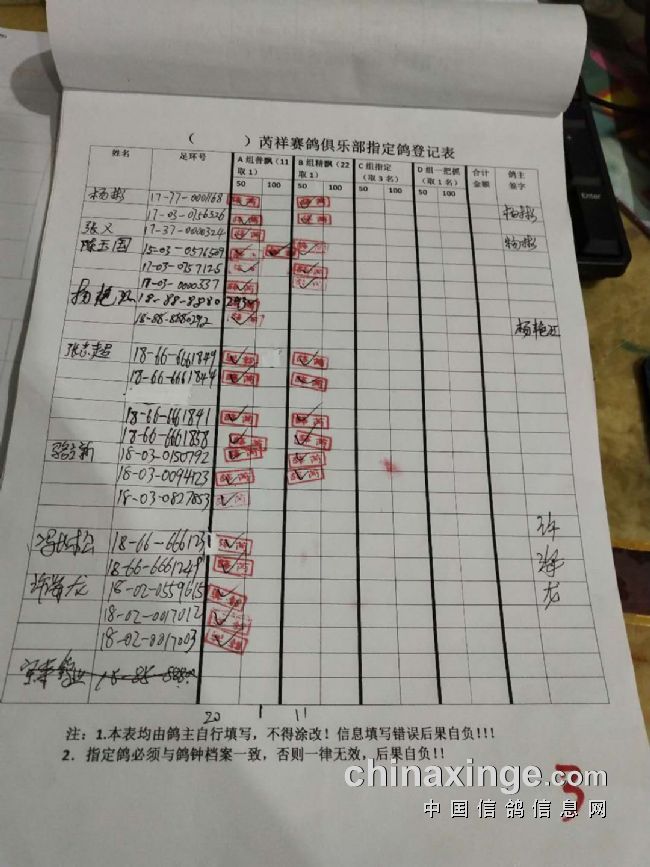 （ ）芮祥赛鸽俱乐部指定鸽登记表
姓名 足环号 A 组普飘（11取1） B 组精飘（22取1） C 组指定（取3名） D 组一把抓（取1名） 合计金额 鸽主签字
50 100 50 100 50 100 50 100
杨彬 17-77-0001168 杨彬
17-03-0756526
张义 17-37-0000324
陈玉国 15-03-0576509 杨彬
17-03-0757125
18-03-0000337
杨艳 18-88-8880293
18-88-8880292 杨艳
张志超 18-66-6661849
18-66-6661844
18-66-6661841
18-66-6661838
骆立新 18-03-0150792
18-03-0094123
18-03-0827853
冯 松 18-66-6661231 许
18-66-6661248 泽
许泽龙 18-02-0559615 龙
18-02-0017012
18-02-0017003
20 1 11
注：1.本表均由鸽主自行填写，不得涂改！信息填写错误后果自负!!!
2．指定鸽必须与鸽钟档案一致，否则一律无效，后果自负!!
3
Enter
chinaxinge.com
中国信鸽信息网